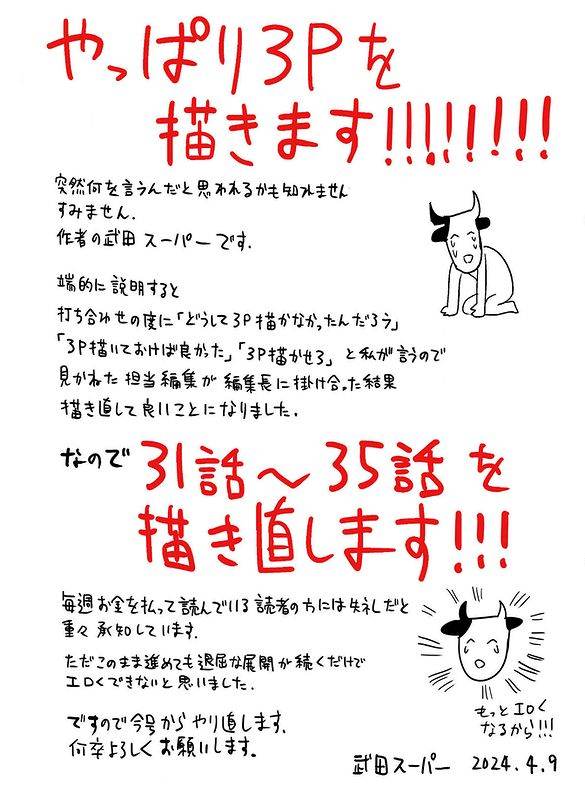 やっぱり3Pを
描きます!!!!!!!!!
突然何を言うんだと思われるかも知れません
すみません.
作者の武田スーパーです.
端的に説明すると
打ち合わせの度に「どうして3P描かなかったんだろう」
「3P描いておけば良かった」「3P描かせろ」と私が言うので
見かねた担当編集が編集長に掛け合った結果
描き直して良いことになりました.
なので 31話〜35話を
描き直します!!!
毎週お金を払って読んでいる読者の方には失礼だと
重々承知しています.
ただこのまま進めても退屈な展開が続くだけで
エロくできないと思いました.
もっとエロく
なるから!!!
ですので今号からやり直します.
何卒よろしくお願いします.
武田スーパー 2024.4.9